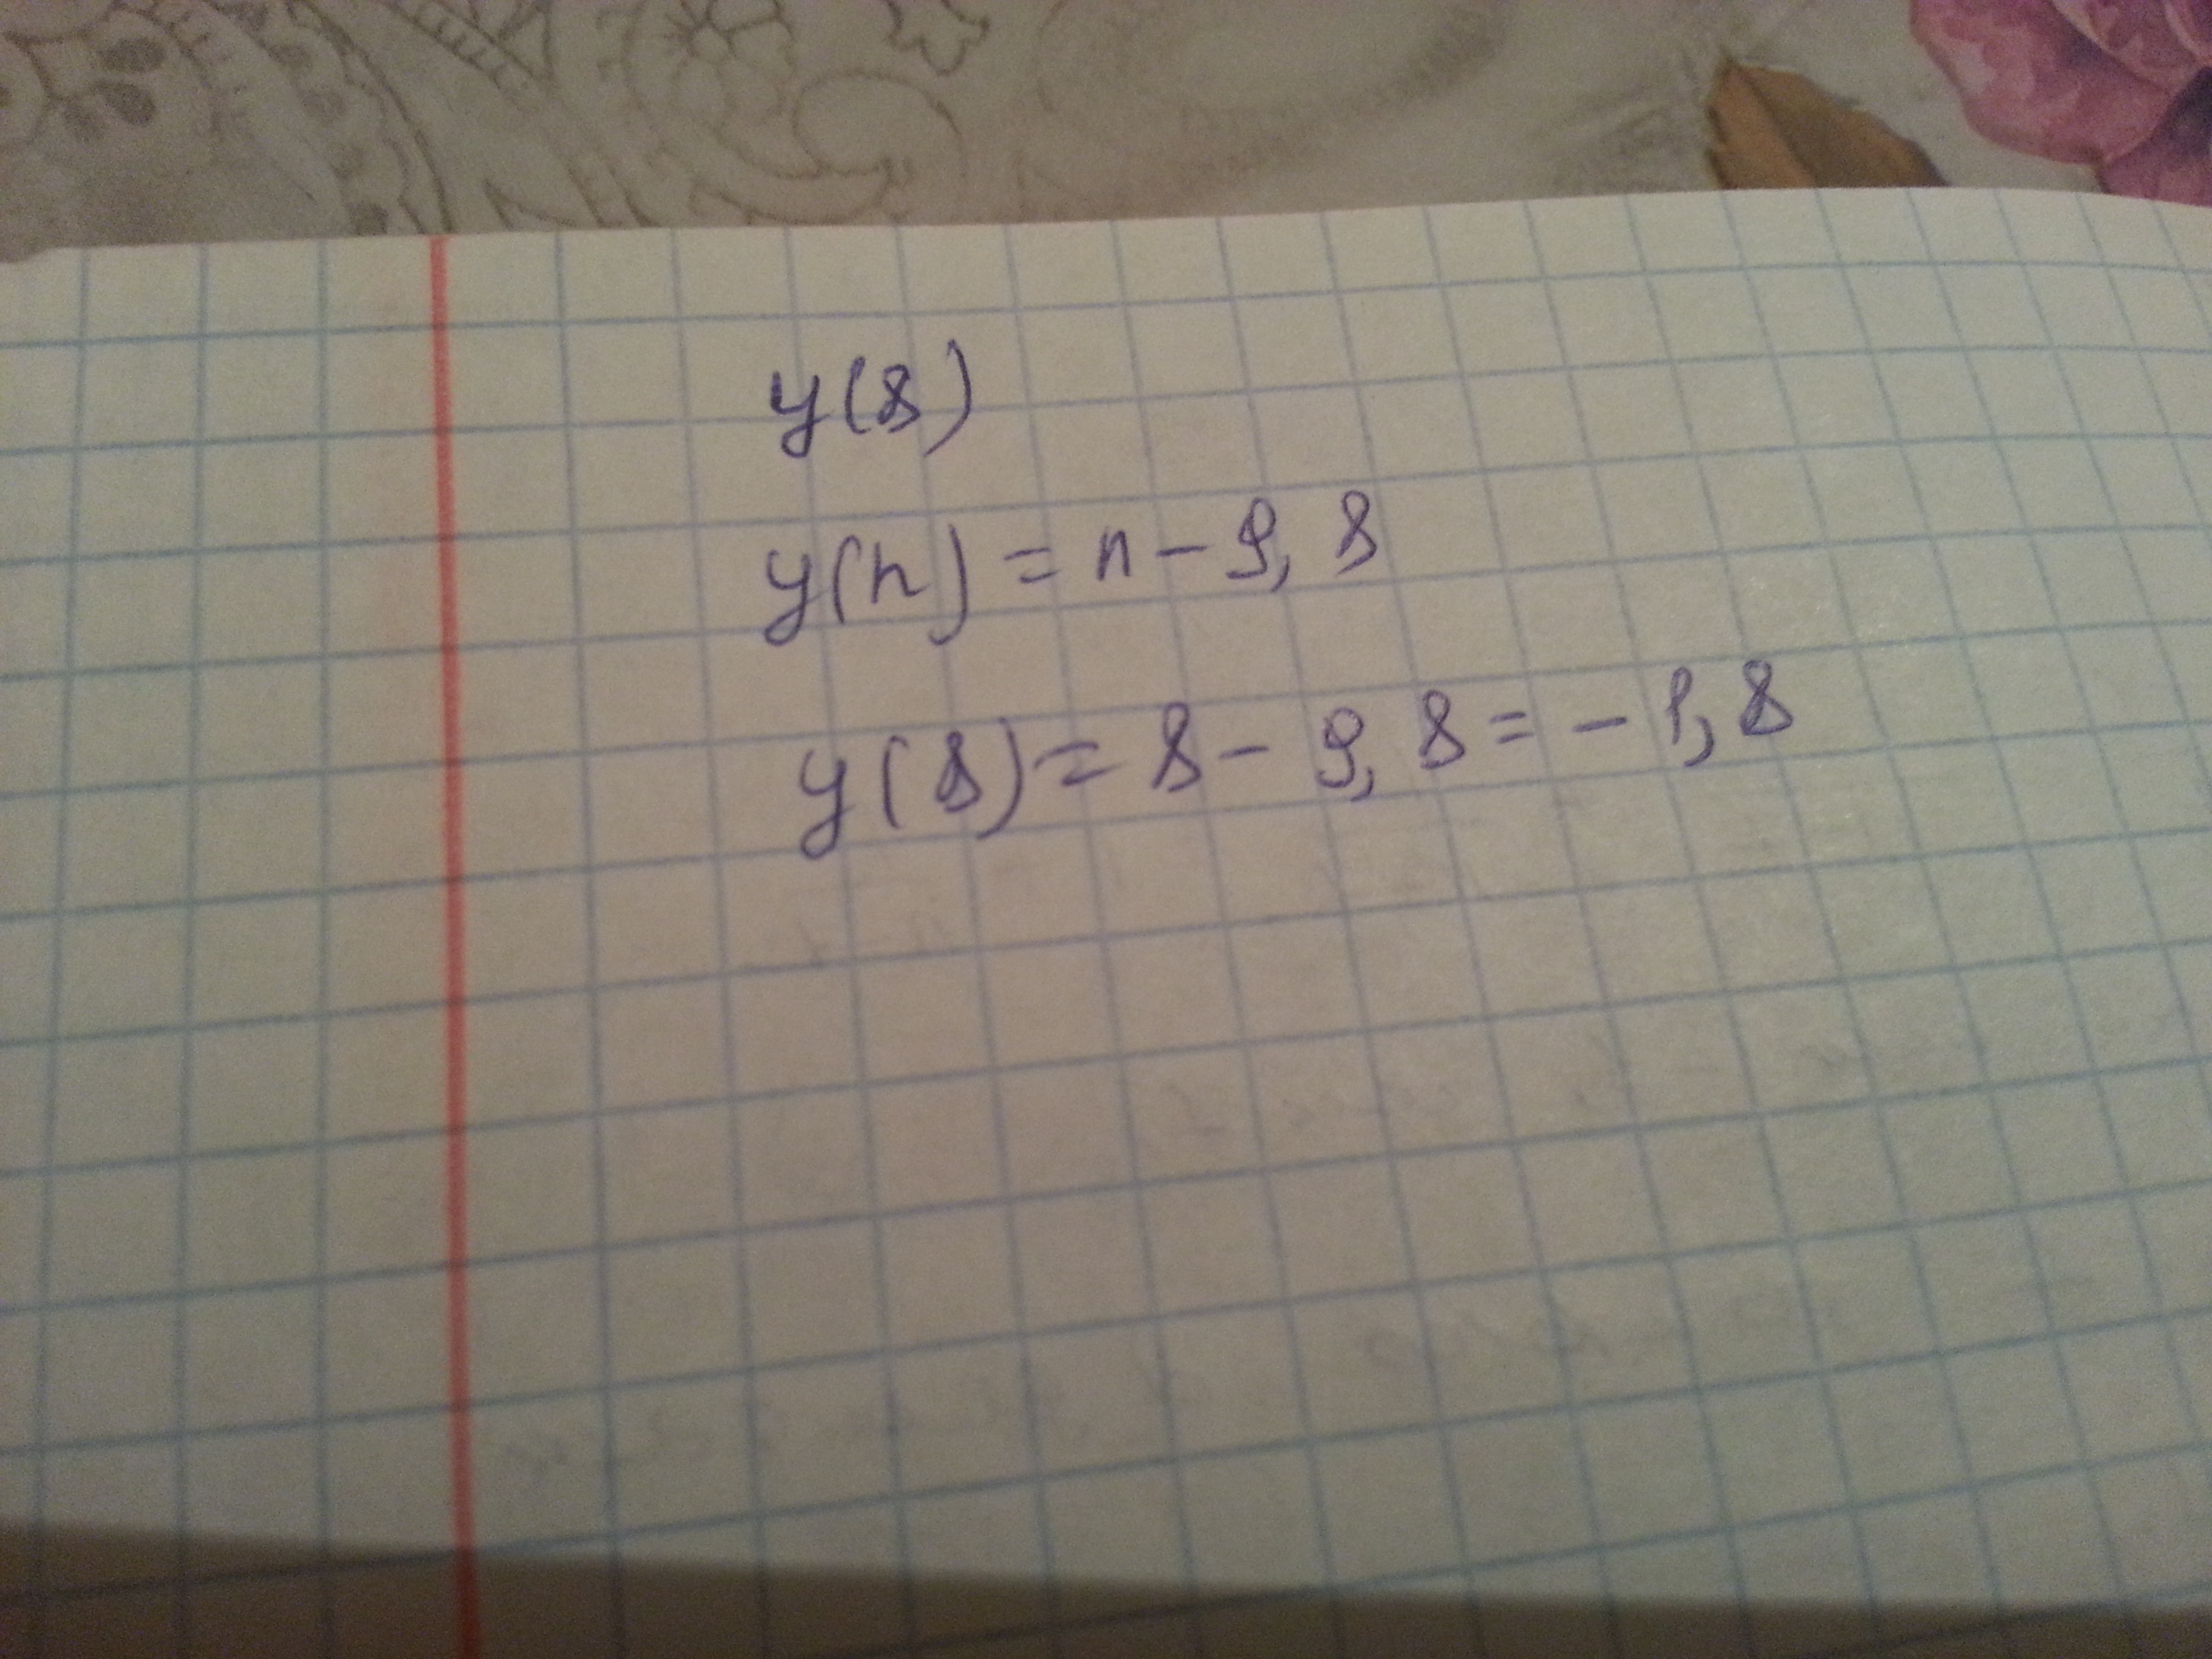 y(8)
y(n) = n - 9,8
y(8) = 8 - 9,8 = -1,8